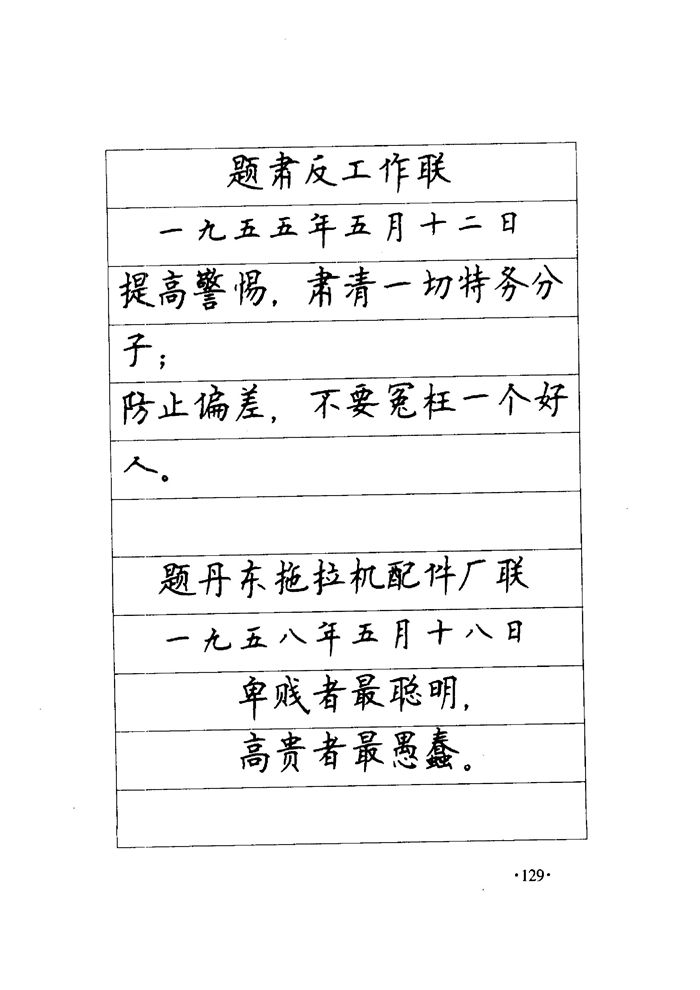 题肃反工作联
一九五五年五月十二日
提高警惕，肃清一切特务分
子；
防止偏差，不要冤枉一个好
人。
题丹东拖拉机配件厂联
一九五八年五月十八日
卑贱者最聪明，
高贵者最愚蠢。
·129·